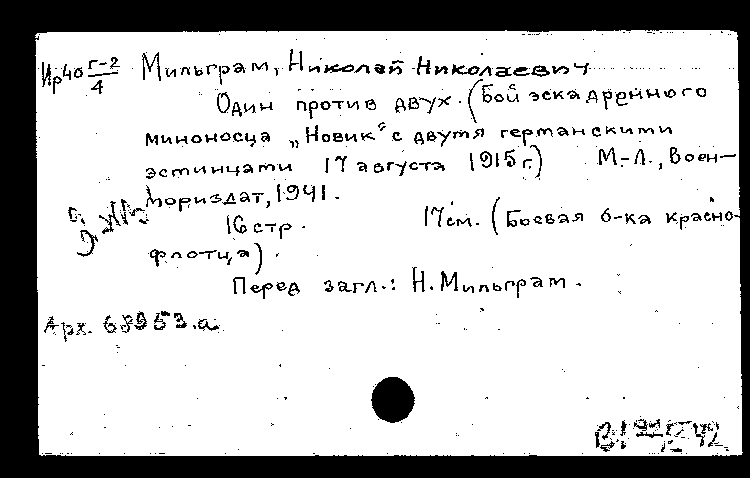 Ир40 Г-2/4 Мильграм, Николай Николаевич
Один против двух. (Бой эскадренного
миноносца „Новик“ с двумя германскими
эсминцами 17 августа 1915 г.) М.-Л., Воен-
мориздат, 1941.
16 стр. 17 см. (Боевая б-ка красно-
флотца).
Перед загл.: Н. Мильграм.
Арх. 68953.а